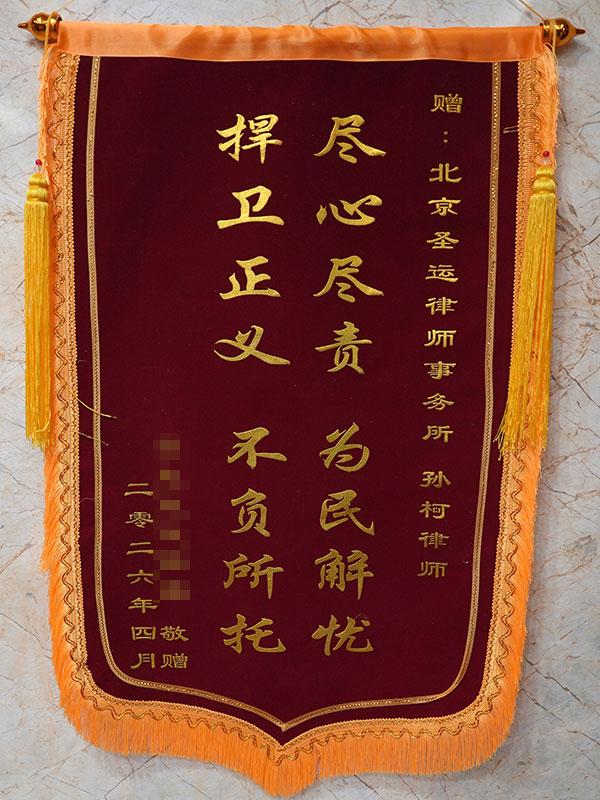 赠：北京圣运律师事务所 孙柯律师
尽心尽责 为民解忧
捍卫正义 不负所托
敬赠
二零二六年四月